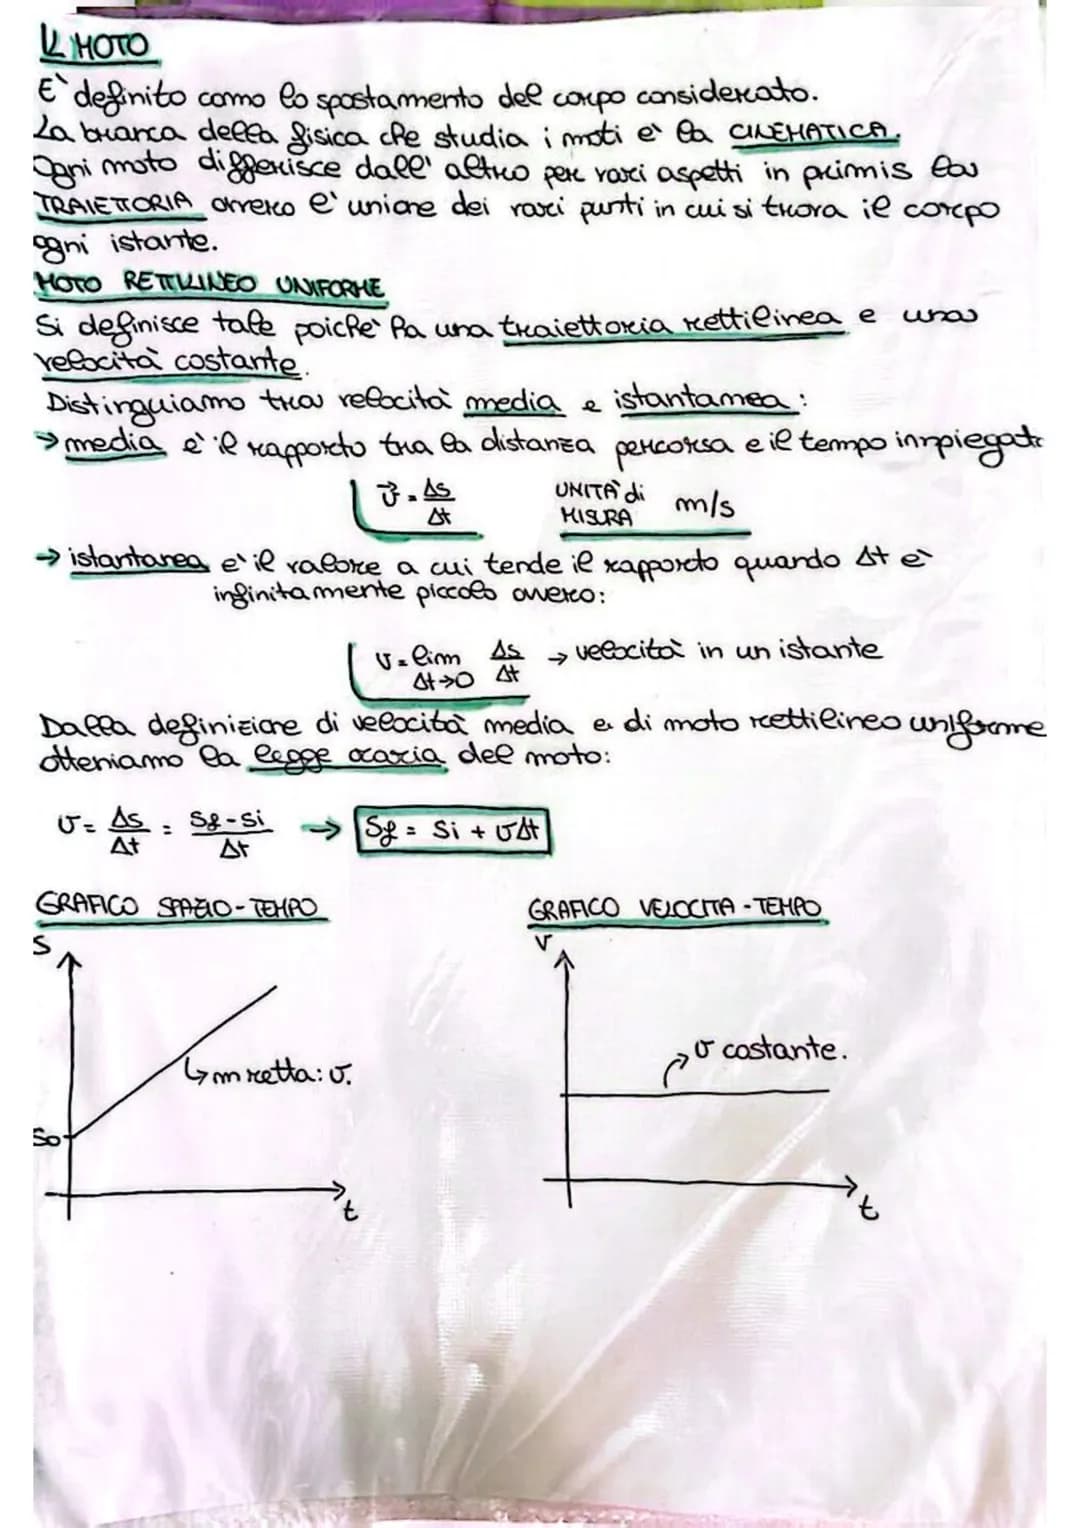 IL MOTO
E' definito como lo spostamento del corpo considerato.
La branca della fisica che studia i moti e' la CINEMATICA.
Ogni moto differisce dall' altro per vari aspetti in primis la
TRAIETTORIA ovvero e' unione dei vari punti in cui si trova il corpo
ogni istante.
MOTO RETTILINEO UNIFORME
Si definisce tale poiche' ha una traiettoria rettilinea e una
velocità costante.
Distinguiamo tra velocità media e istantanea:
→ media e' il rapporto tra la distanza percorsa e il tempo impiegato
v⃗ = Δs/Δt UNITA' di MISURA m/s
→ istantanea e' il valore a cui tende il rapporto quando Δt e'
infinitamente piccolo ovvero:
v = lim Δt→0 Δs/Δt → velocità in un istante
Dalla definizione di velocità media e di moto rettilineo uniforme
otteniamo la legge oraria del moto:
v = Δs/Δt = Sf-Si/Δt → Sf = Si + vΔt
GRAFICO SPAZIO-TEMPO
S
↳ m retta: v.
So
t
GRAFICO VELOCITA-TEMPO
V
v costante.
t